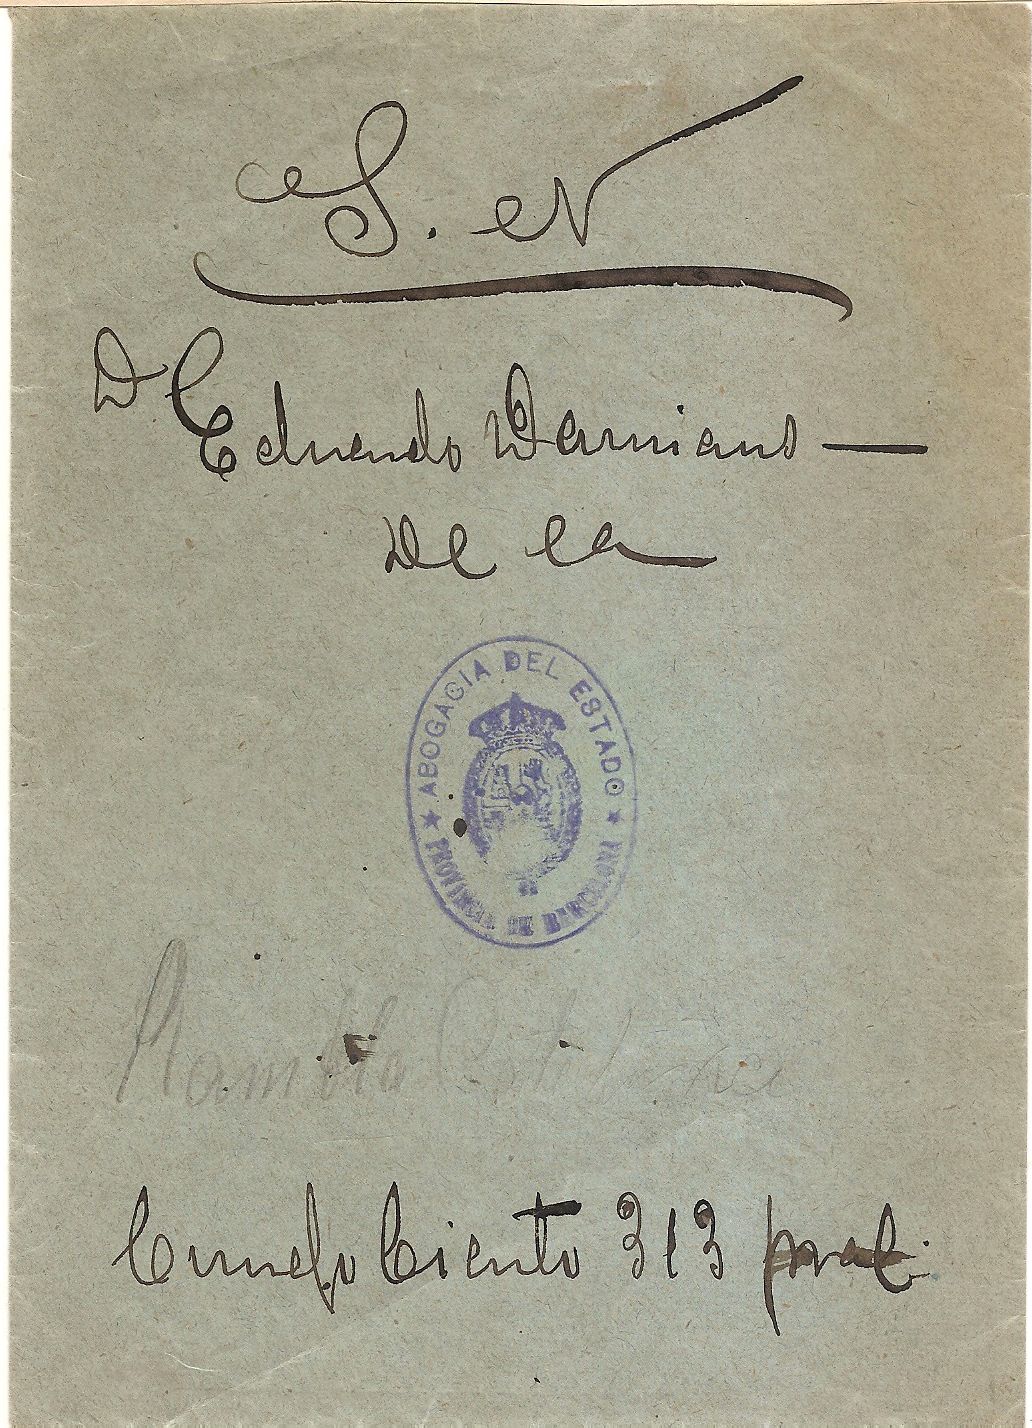 S. N
D Eduardo Damians —
De ca
ABOGACIA DEL ESTADO
PROVINCIAL DE BARCELONA
Rambla Cataluña
Consejo Ciento 313 pral.